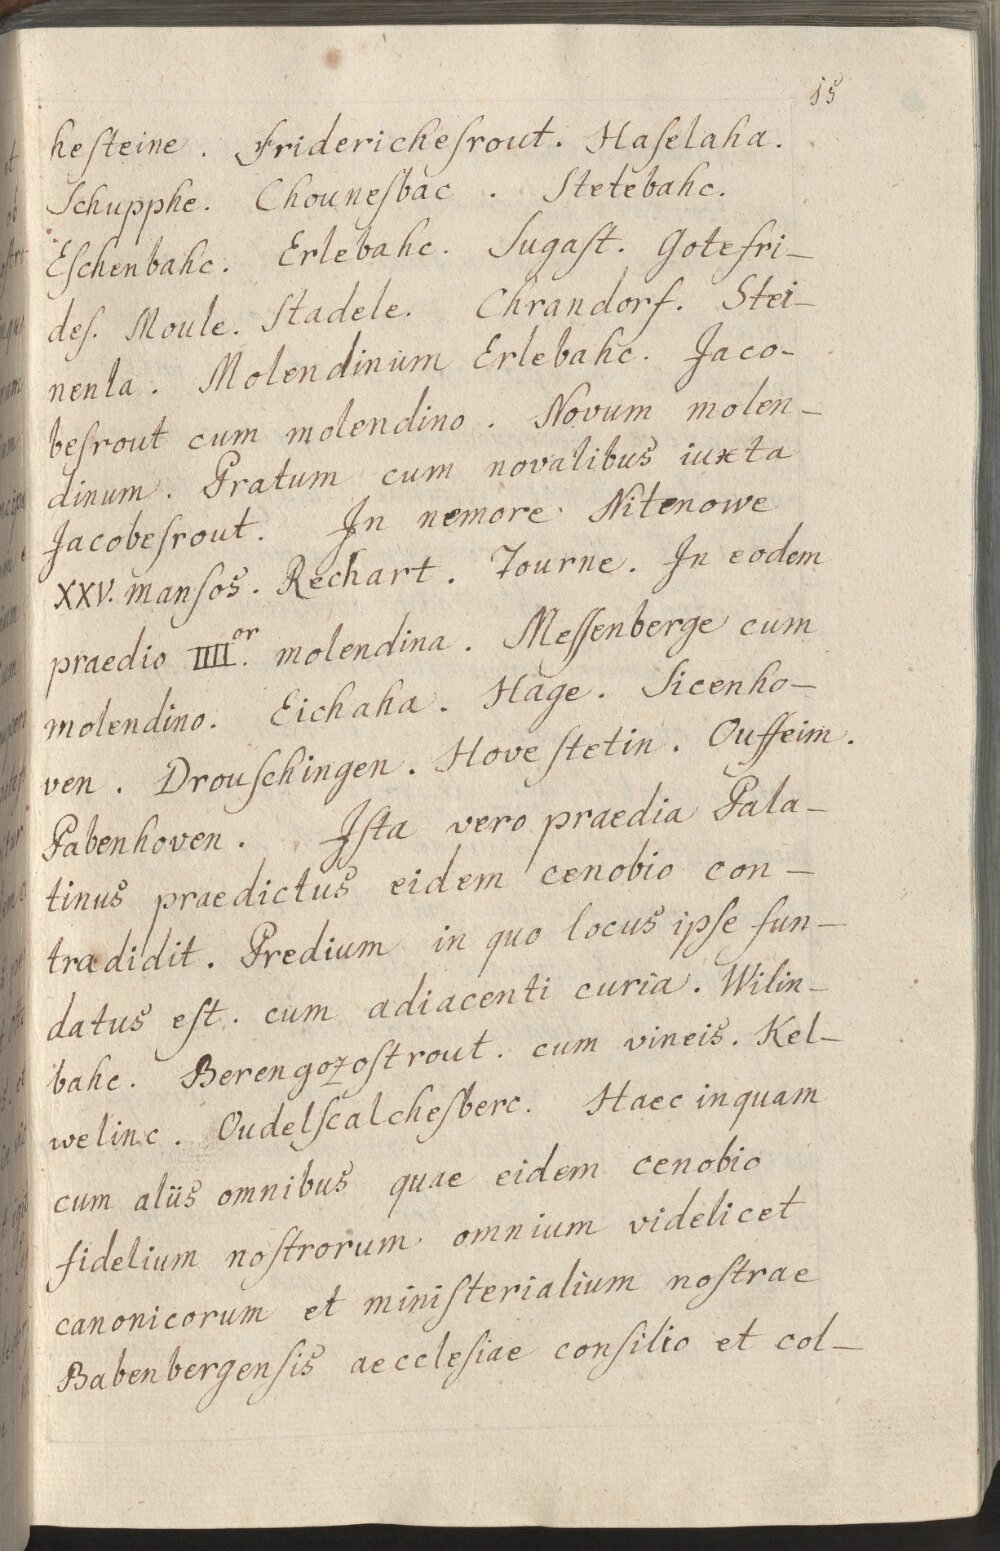 15
heſteine. Friderichesrout. Haſelaha.
Schupphe. Chouneſbac. Stetebahc.
Eſchenbahc. Erlebahc. Sugaſt. Gotefri-
deſ. Moule. Stadele. Chrandorf. Stei-
nenla. Molendinum Erlebahc. Jaco-
beſrout cum molendino. Novum molen-
dinum. Pratum cum novalibus iuxta
Jacobeſrout. In nemore Nitenowe
XXV. manſos. Rechart. Tourne. In eodem
praedio IIII.or molendina. Meſſenberge cum
molendino. Eichaha. Hage. Sicenho-
ven. Drouſchingen. Hoveſtetin. Ouffeim.
Pabenhoven. Iſta vero praedia Pala-
tinus praedictus eidem cenobio con-
tradidit. Predium in quo locus ipſe fun-
datus eſt. cum adiacenti curia. Wilin-
bahc. Berengozoſtrout. cum vineis. Kel-
welinc. Oudelſcalcheſberc. Haec inquam
cum aliis omnibus quae eidem cenobio
fidelium noſtrorum omnium videlicet
canonicorum et miniſterialium noſtrae
Babenbergenſis aecclesiae conſilio et col-